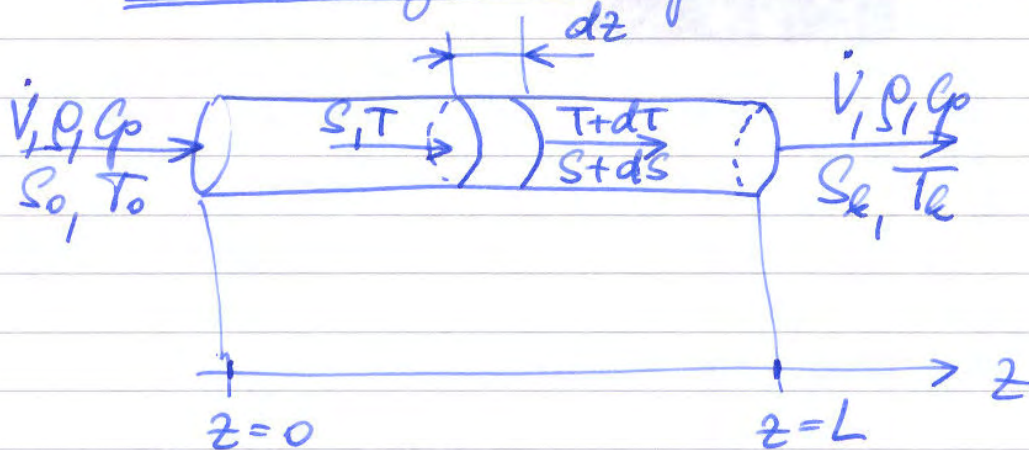 dz
V̇, ρ, Cp
S₀, T₀
S, T
T+dT
S+dS
V̇, ρ, Cp
Sₖ, Tₖ
z
z = 0
z = L